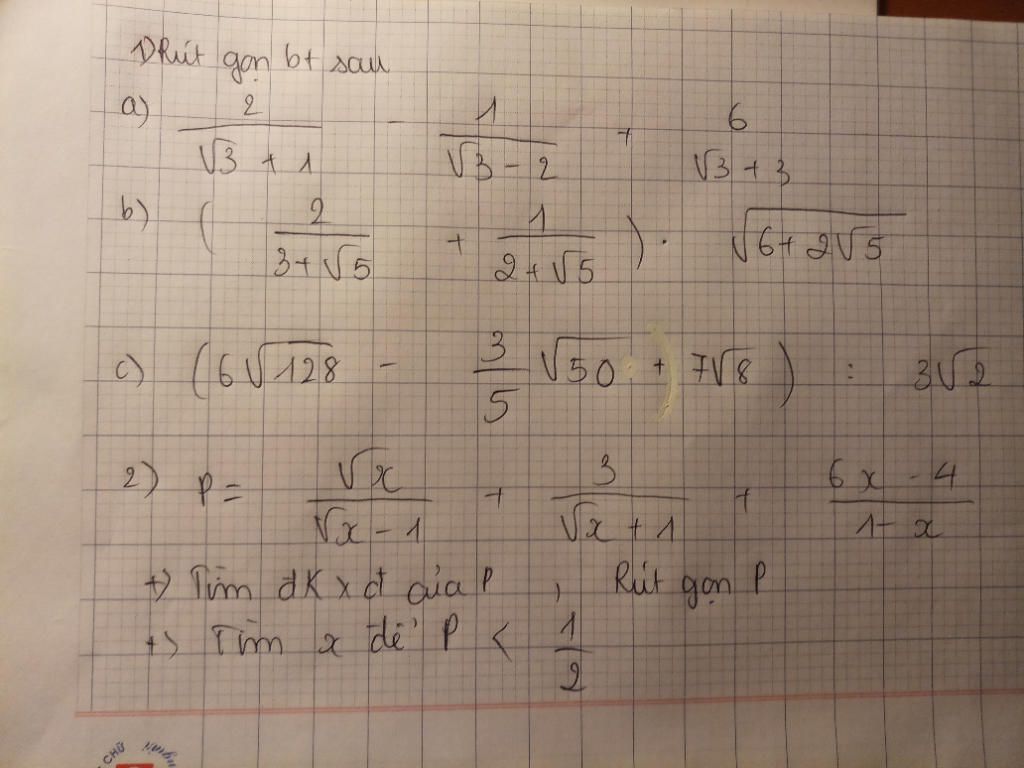 1) Rút gọn bt sau
a) 2/(√3 + 1) - 1/(√3 - 2) + 6/(√3 + 3)
b) ( 2/(3+√5) + 1/(2+√5) ) . √(6+2√5)
c) ( 6√128 - 3/5 √50 + 7√8 ) : 3√2
2) P = √x/(√x - 1) + 3/(√x + 1) + (6x - 4)/(1 - x)
+) Tìm đK xđ của P , Rút gọn P
+) Tìm x để P < 1/2
CHỮ